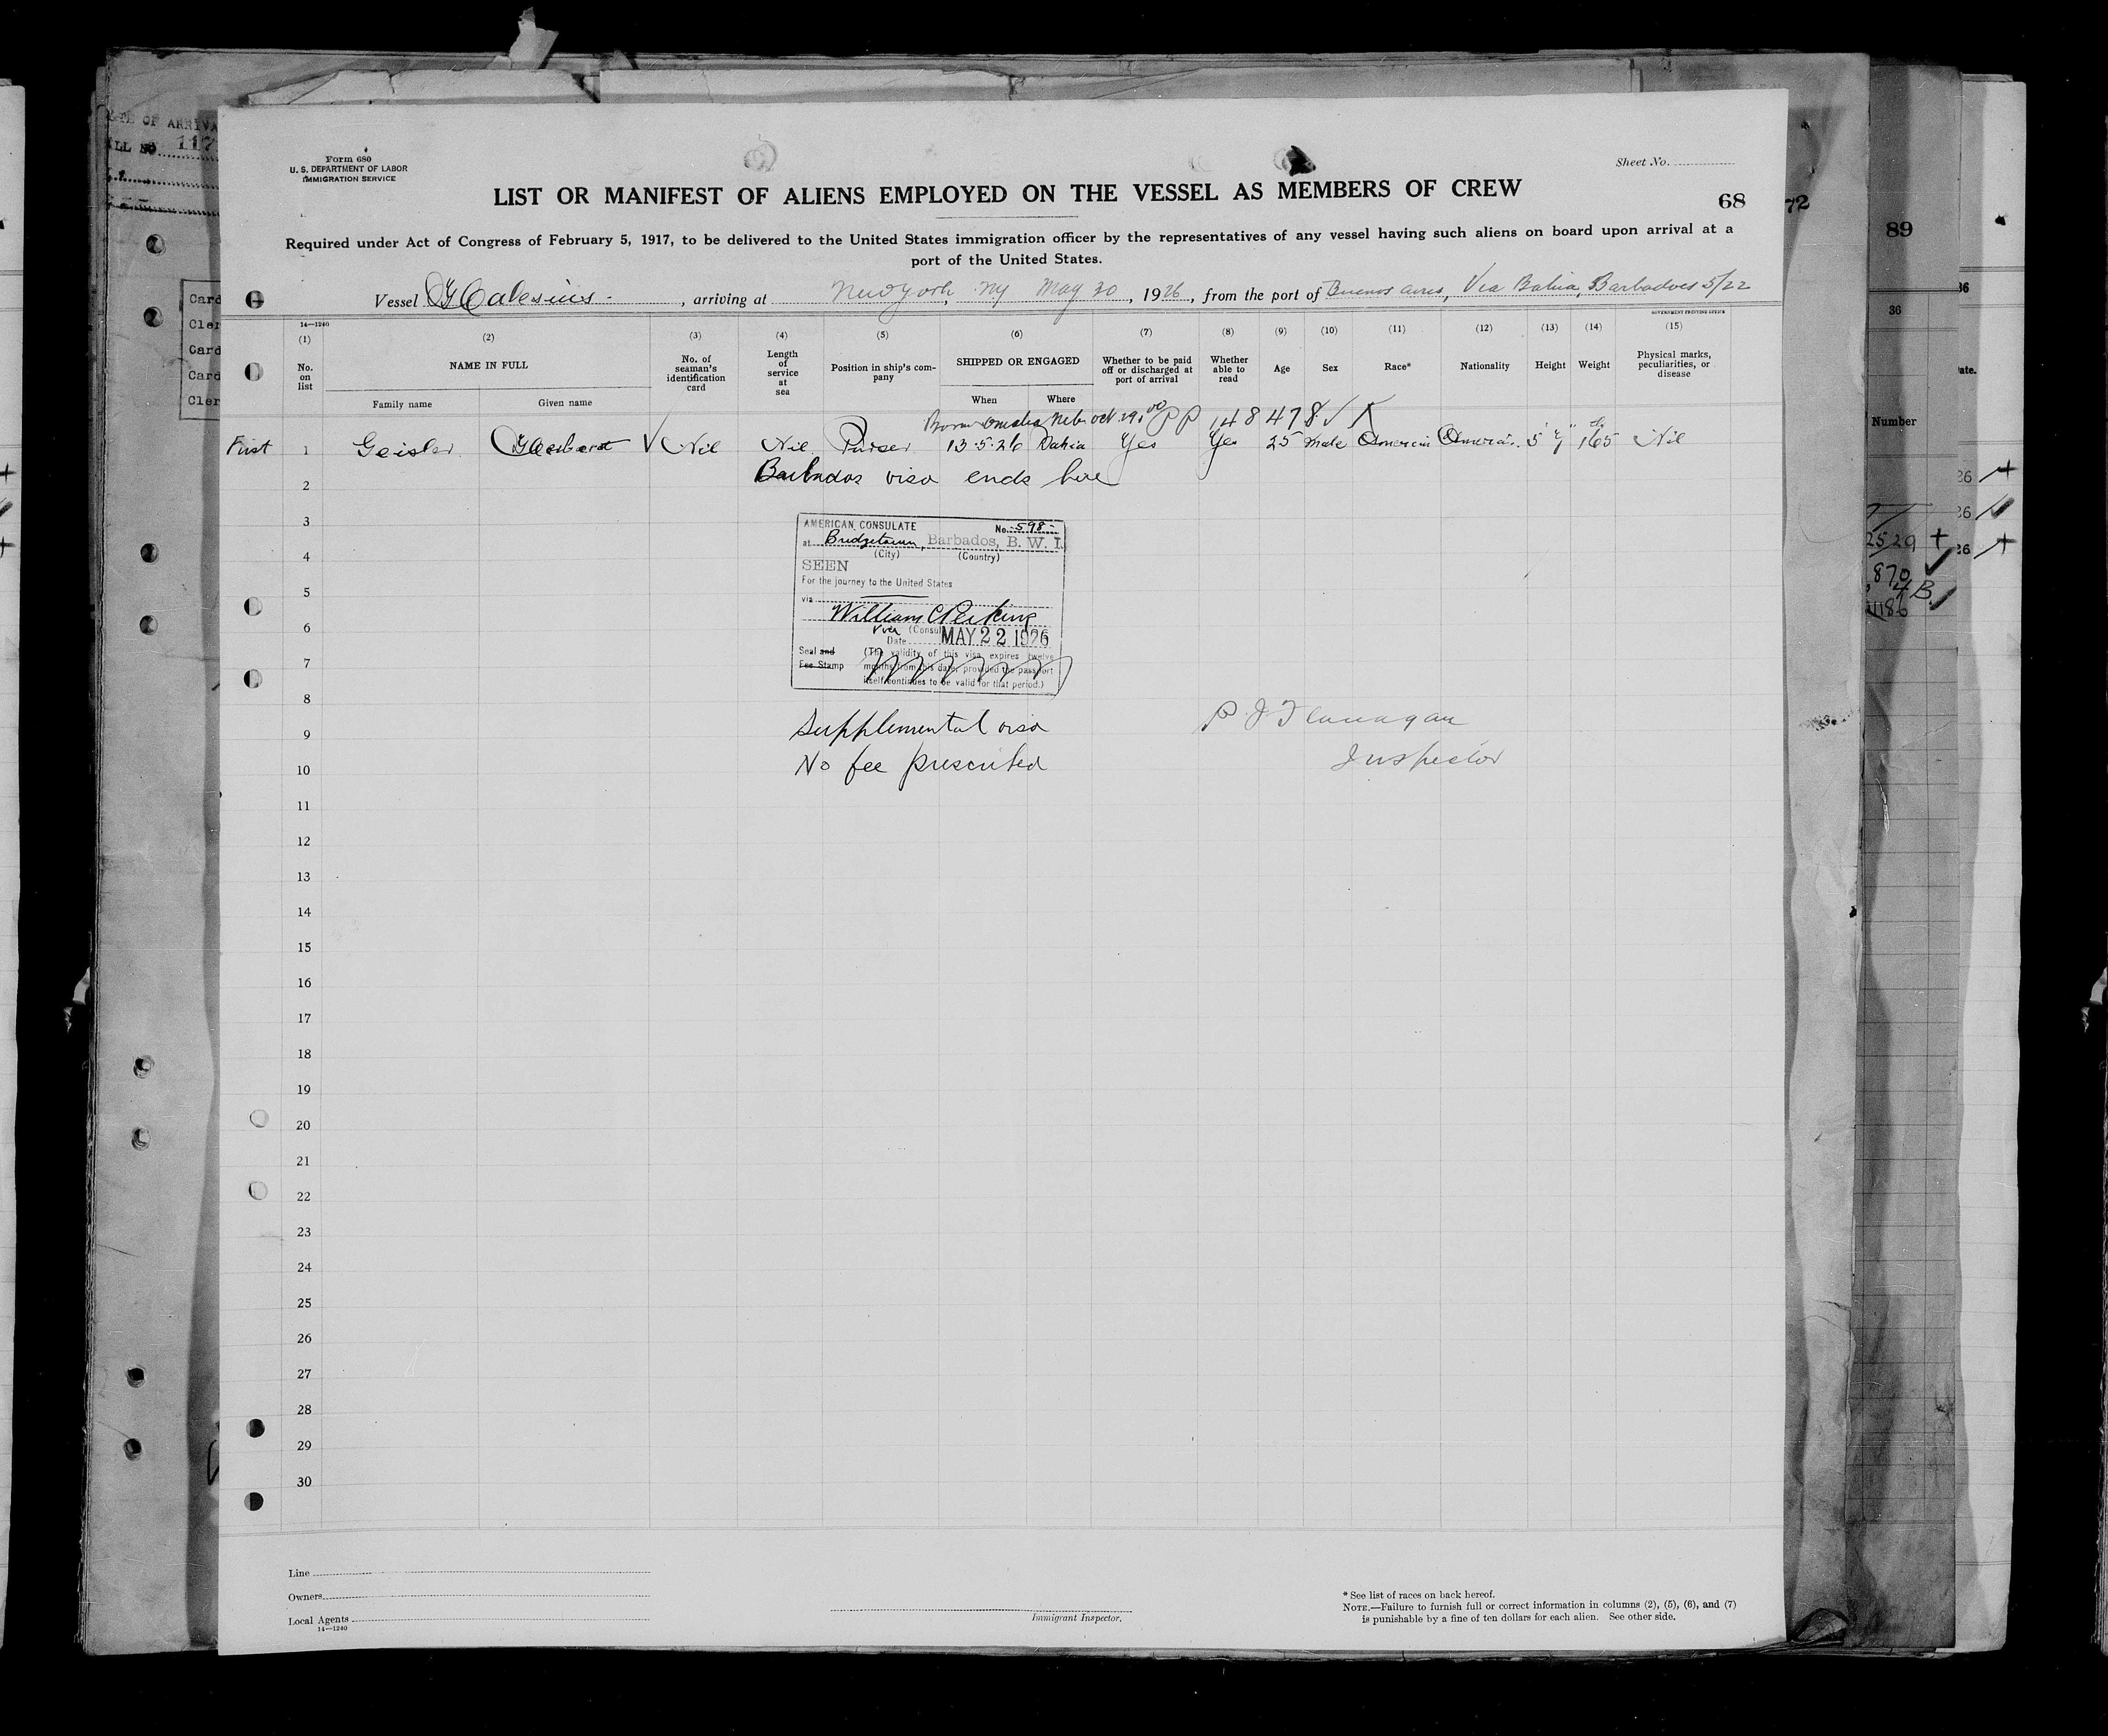 Form 680
U. S. DEPARTMENT OF LABOR
IMMIGRATION SERVICE
Sheet No.
LIST OR MANIFEST OF ALIENS EMPLOYED ON THE VESSEL AS MEMBERS OF CREW
68
72
89
Required under Act of Congress of February 5, 1917, to be delivered to the United States immigration officer by the representatives of any vessel having such aliens on board upon arrival at a
port of the United States.
Vessel , arriving at New York, NY May 30, 1926, from the port of Buenos Aires, Via Bahia, Barbadoes 5/22
14—1240
GOVERNMENT PRINTING OFFICE
(1) (2) (3) (4) (5) (6) (7) (8) (9) (10) (11) (12) (13) (14) (15)
No. on list
NAME IN FULL
Family name
Given name
No. of seaman's identification card
Length of service at sea
Position in ship's company
SHIPPED OR ENGAGED
When
Where
Whether to be paid off or discharged at port of arrival
Whether able to read
Age
Sex
Race*
Nationality
Height
Weight
Physical marks, peculiarities, or disease
Born Omaha Neb. Oct. 29, 00 PP 148478 ✓
First 1 Geisler ✓ Nil Nil Purser 13-5-26 Bahia Yes Yes 25 Male American American 5' 7" 165 Nil
2 Barbados visa ends here
3
AMERICAN CONSULATE No. 598
at Bridgetown, Barbados, B. W. I.
4
(City) (Country)
SEEN
For the journey to the United States
5
via
William C Perkins
6
Vice (Consul
Date MAY 22 1926
Seal and Fee Stamp
(The validity of this visa expires twelve
7
months from this date, provided the passport
itself continues to be valid for that period.)
8
9 Supplemental visa P J Flanagan
10 No fee prescribed Inspector
11
12
13
14
15
16
17
18
19
20
21
22
23
24
25
26
27
28
29
30
Line
Owners
Local Agents
14—1240
Immigrant Inspector.
* See list of races on back hereof.
NOTE.—Failure to furnish full or correct information in columns (2), (5), (6), and (7)
is punishable by a fine of ten dollars for each alien. See other side.
117
Card
Cler
Card
Card
Cler
36
Number
2529 +
870